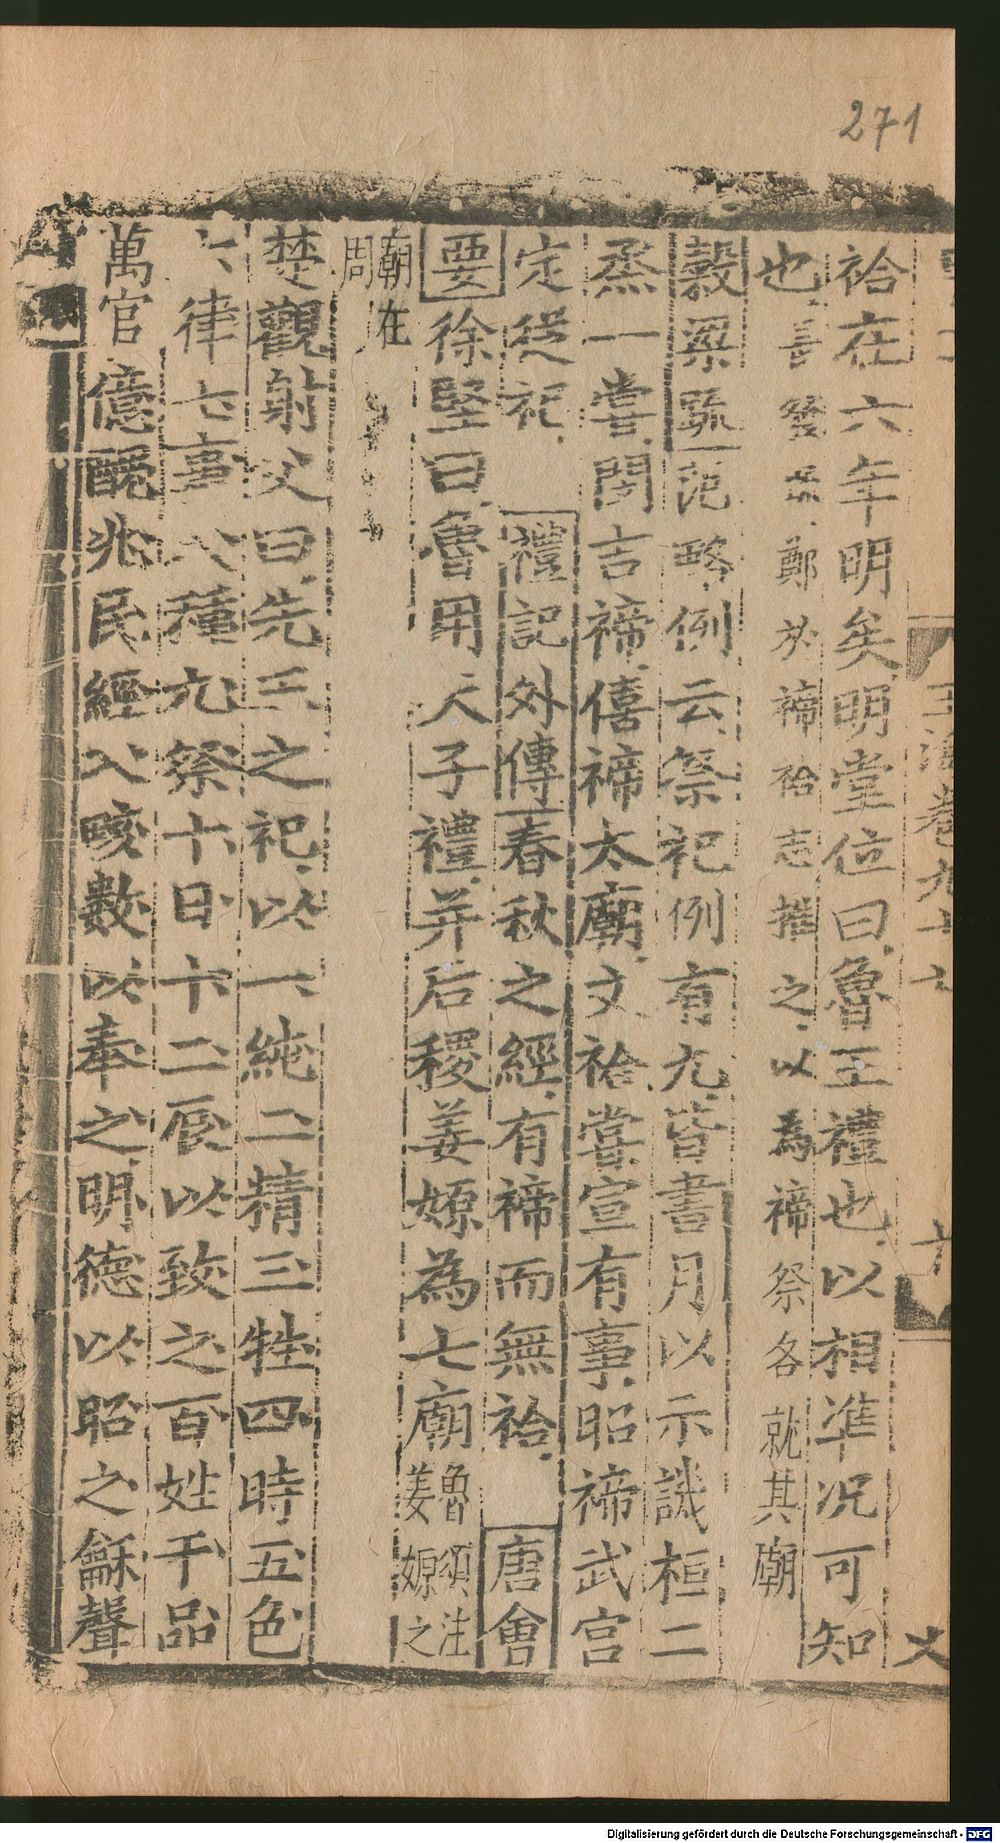 271
祫在六年明矣明堂位曰魯王禮也以相準況可知
也鄭於禘祫志推之以為禘祭各就其廟
穀梁疏范略例云祭祀例有九皆書月以示譏桓二
烝一嘗閔吉禘僖禘太廟文祫嘗宣有事昭禘武宮
定從祀 禮記外傳春秋之經有禘而無祫 唐會
要徐堅曰魯用天子禮并后稷姜嫄為七廟魯頌注姜嫄之
廟在周
楚觀射父曰先王之祀以一純二精三牲四時五色
六律七事八種九祭十日十二辰以致之百姓千品
萬官億醜兆民經入畡數以奉之明德以昭之龢聲
Digitalisierung gefördert durch die Deutsche Forschungsgemeinschaft - DFG